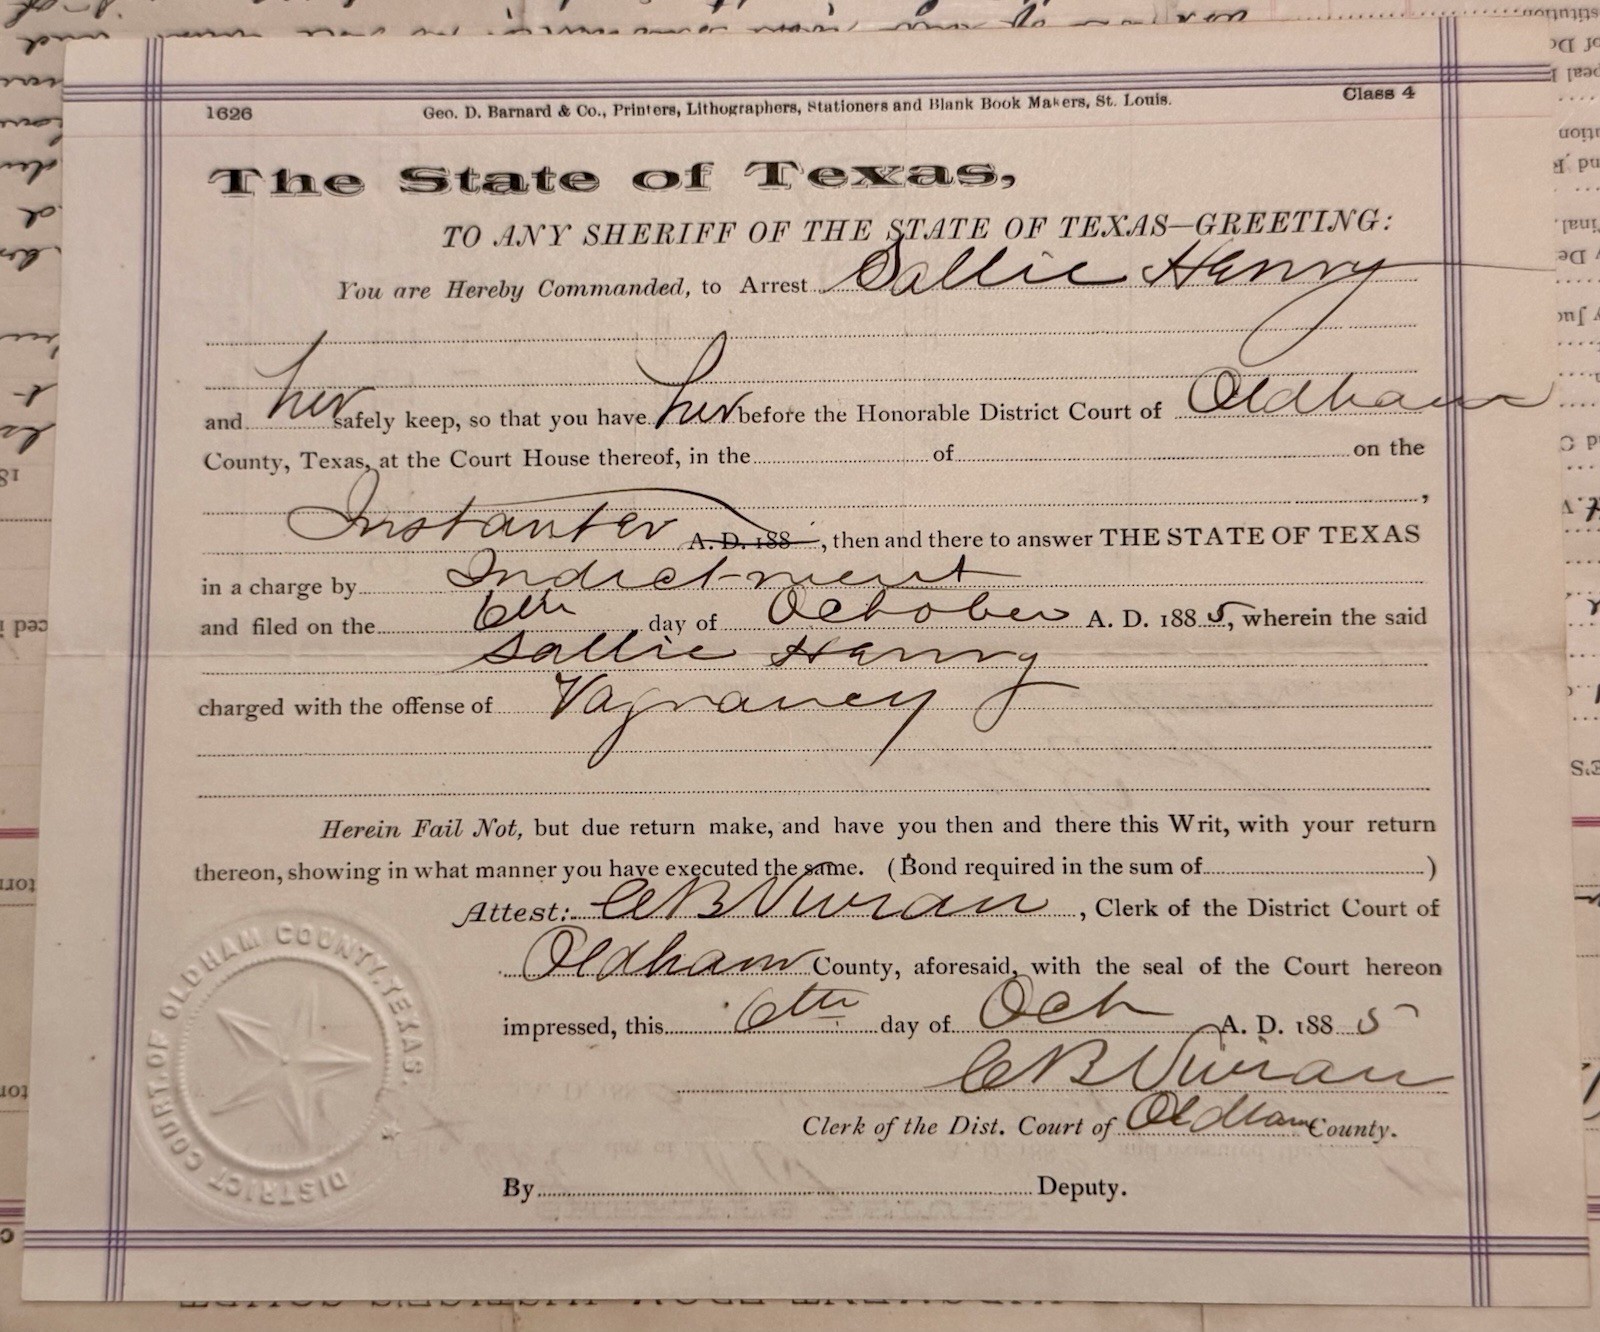 1626 Geo. D. Barnard & Co., Printers, Lithographers, Stationers and Blank Book Makers, St. Louis. Class 4
The State of Texas,
TO ANY SHERIFF OF THE STATE OF TEXAS—GREETING:
You are Hereby Commanded, to Arrest Sallie Henry
and her safely keep, so that you have her before the Honorable District Court of Oldham
County, Texas, at the Court House thereof, in the of on the
,
Instanter A. D. 188 , then and there to answer THE STATE OF TEXAS
in a charge by Indictment
and filed on the 6th day of October A. D. 1885, wherein the said
Sallie Henry
charged with the offense of Vagrancy
Herein Fail Not, but due return make, and have you then and there this Writ, with your return
thereon, showing in what manner you have executed the same. (Bond required in the sum of )
Attest: C B Vivian , Clerk of the District Court of
Oldham County, aforesaid, with the seal of the Court hereon
impressed, this 6th day of Oct A. D. 1885
C B Vivian
Clerk of the Dist. Court of Oldham County.
By Deputy.
DISTRICT COURT OF OLDHAM COUNTY, TEXAS.